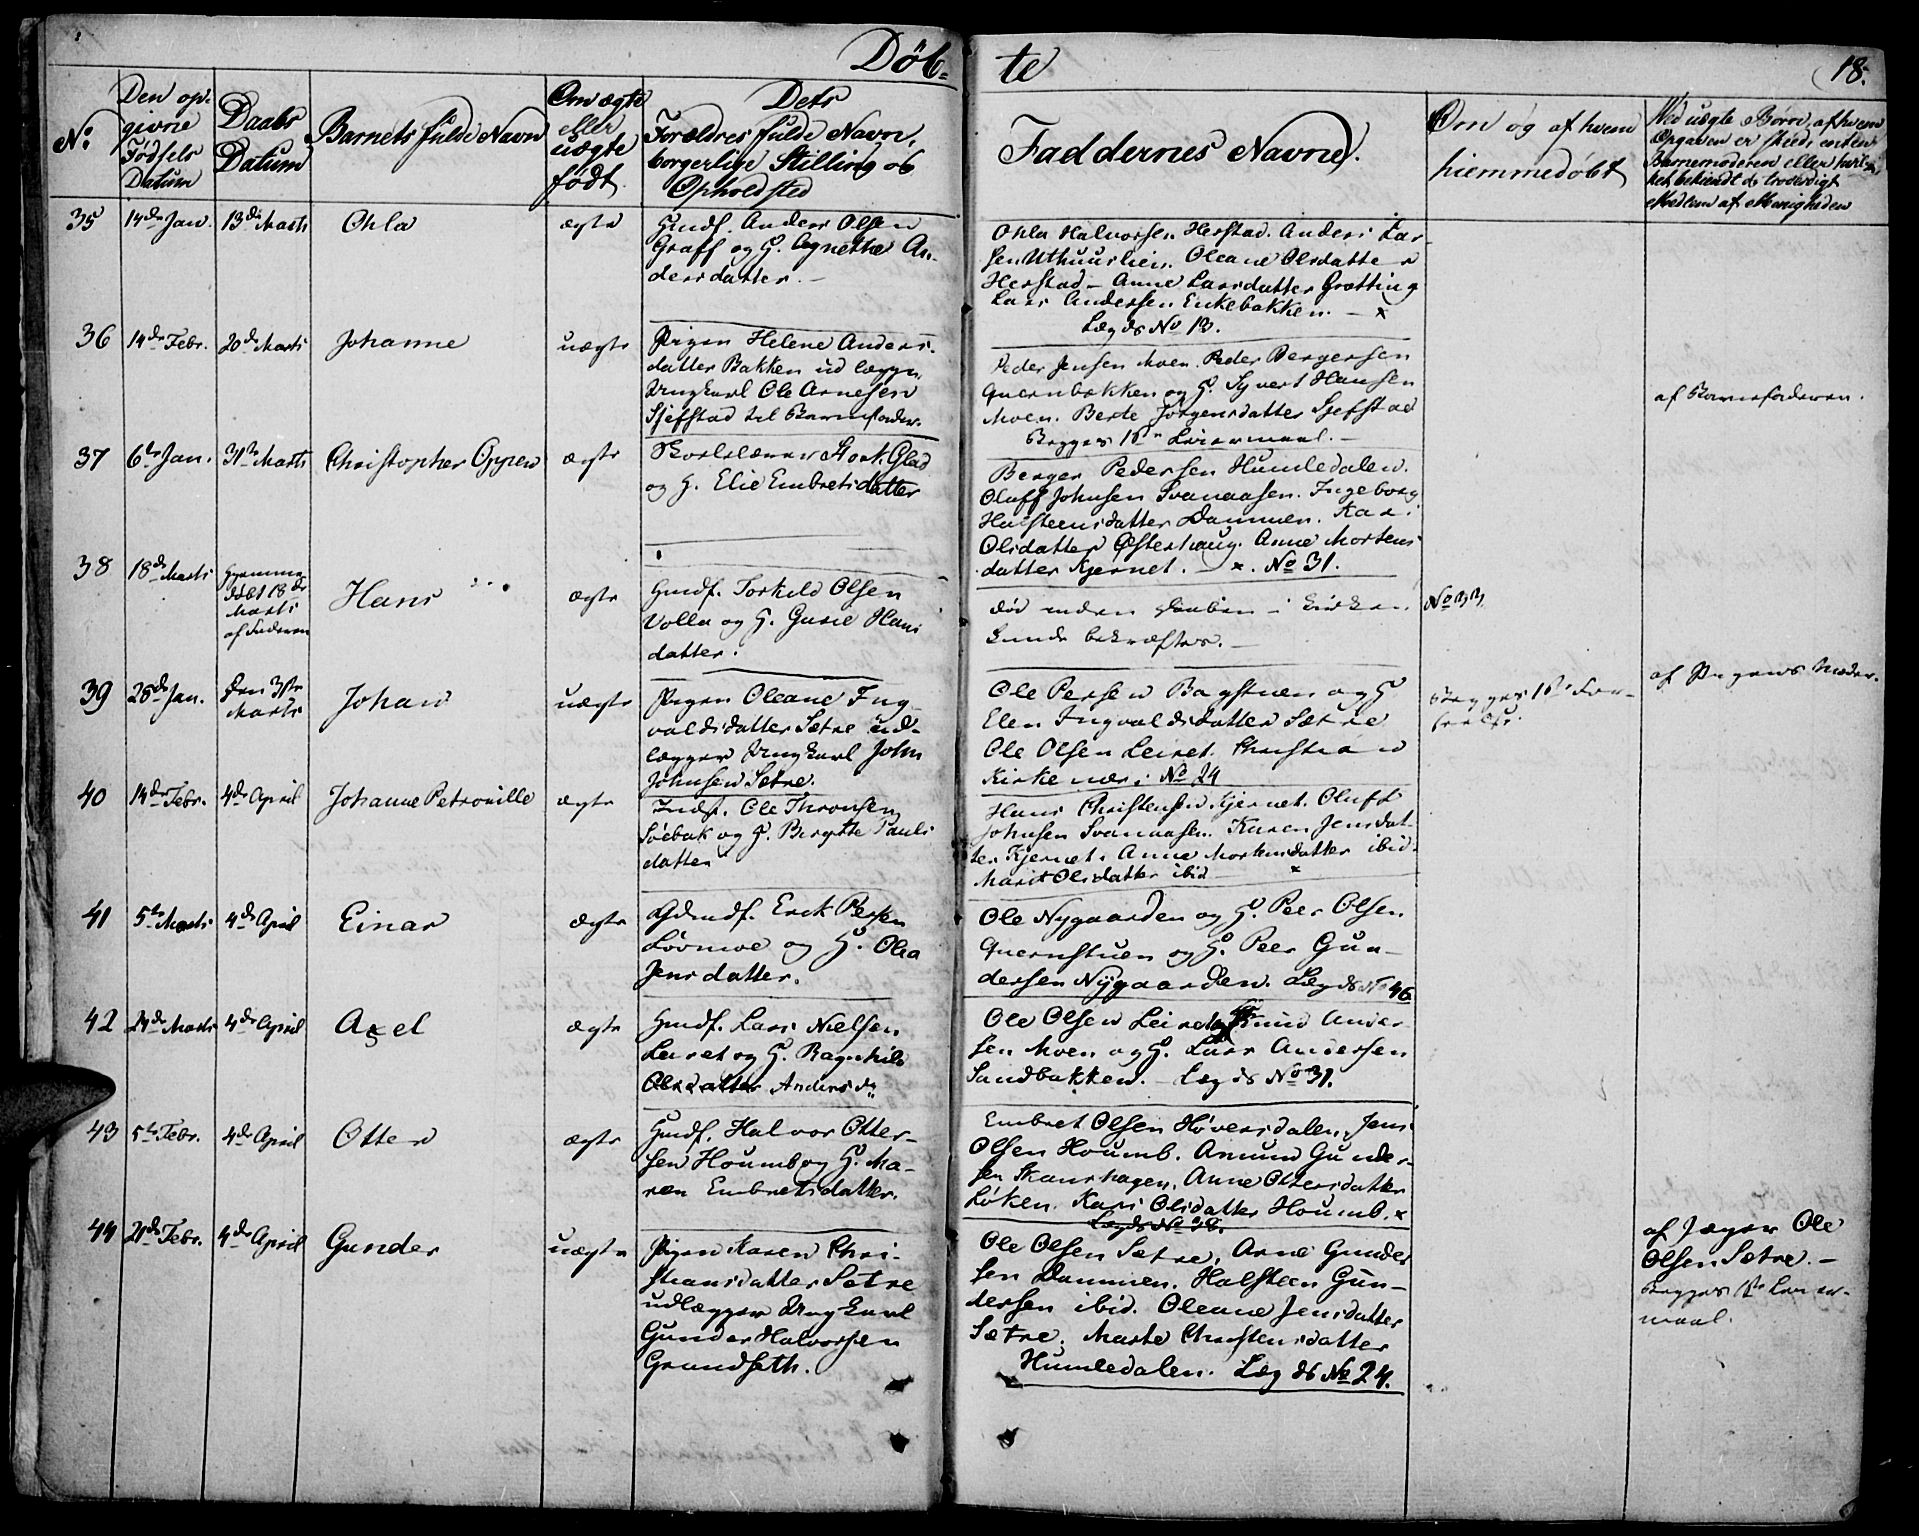 Døb-
te
18.
No
Den op-
givne
Fødsels
Datum
Daabs
Datum
Barnets fulde Navn
Om ægte
eller
uægte
født.
Dets
Forældres fulde Navn,
borgerlige Stilling og
Opholdsted
Faddernes Navne.
Om og af hvem
hiemmedøbt
Ved uægte Børn, af hvem
Opgaven er skeed, enten
Barnemoderen eller hvil-
ket bekiendt de troværdigt
Medlem af Menigheden
35
14de Jan.
13de Marts
Ohla
ægte
Huusf. Anders Olsen
Graff og H. Agnethe An-
dersdatter. -
Ohla Halvorsen Herstad. Anders Lar-
sen Uthuuslien. Oleane Olsdatter
Herstad - Anne Larsdatter Grøtting
Lars Andersen Enkebakken. - x
Lægds No 13.
36
14de Febr.
20de Marts
Johanne
uægte
Pigen Helene Anders-
datter Bakken udlægger
Ungkarl Ole Arnesen
Sjefstad til Barnefader.
Peder Jensen Moen. Peder Bergersen
Quernbekken og H. Syvert Hansen
Moen. Berte Jørgensdatter Sjefstad
Begges 1ste Leiermaal. -
af Barnefaderen.
37
6te Jan.
31te Marts
Christopher Oppen
ægte
Skolelærer Stork. Glad
og H. Elie Embretsdatter
Berger Pedersen Humledalen.
Oluff Johnsen Svenaasen. Ingeborg
Halsteensdatter Dammen. Kari
Olsdatter Østerhaug. Anne Mortens
datter Kjernet. - x. No 31.
38
18de Marts
Hjemme
døbt 18de
Marts
af Faderen
Hans
ægte
Huusf. Torkild Olsen
Volla og H. Gusie Hans
datter.
død inden Daaben i Kirken
kunde bekræftes. -
No 33
39
28de Jan.
Den 31te
Marts
Johan
uægte
Pigen Oleane Ing-
valdsdatter Sætre ud-
lægger Ungkarl John
Johnsen Sætre.
Ole Persen Bagstuen og H
Elen Ingvaldsdatter Sætre
Ole Olsen Leiret. Christian
Kirkenær. No 24
Begges 1ste For-
seelse.
af Pigens Moder.
40
14de Febr.
4de April
Johanne Petronille
ægte
Indf. Ole Thronsen
Søebak og H. Bergitte Pauls
datter
Hans Christensen Kjernet. Oluff
Johnsen Svenaasen. Karen Jensdat-
ter Kjernet. Anne Mortensdatter ibid.
Marit Olsdatter ibid x
41
5te Marts
4de April
Einar
ægte
Gdmdf. Erik Persen
Løvmoe og H. Olea
Jensdatter.
Ole Nygaarden og H. Peer Olsen
Quernstuen og H. Peer Gun-
dersen Nygaarden. Lægds No 46.
42
24de Marts
4de April
Axel
ægte
Huusf. Lars Nielsen
Leiret og H. Ragnhild
Olsdatter Anders dr.
Ole Olsen Leiret og Gunid Ander-
sen Moen og H. Lars Andersen
Sandbakken. - Lægds No 31.
43
5te Febr.
4de April
Otter
ægte
Huusf. Halvor Otter-
sen Houmb og H. Ma-
ren Embretsdatter.
Embret Olsen Høversdalen, Jens
Olsen Houmb. Amund Gunder-
sen Skaurhagen. Anne Ottersdatter
Løken. Kari Olsdatter Houmb. x
Lægds No 38.
44
21de Febr.
4de April
Gunder
uægte
Pigen Karen Chri-
stiansdatter Sætre
udlægger Ungkarl
Gunder Halvorsen
Grundseth.
Ole Olsen Sætre, Arne Gunder
sen Dammen. Halsteen Gun-
dersen ibid. Oleane Jensdatter
Sætre. Marte Christensdatter
Humledalen. Lægds No 24.
af Jæger Ole
Olsen Sætre. -
Begges 1ste Leier-
maal.